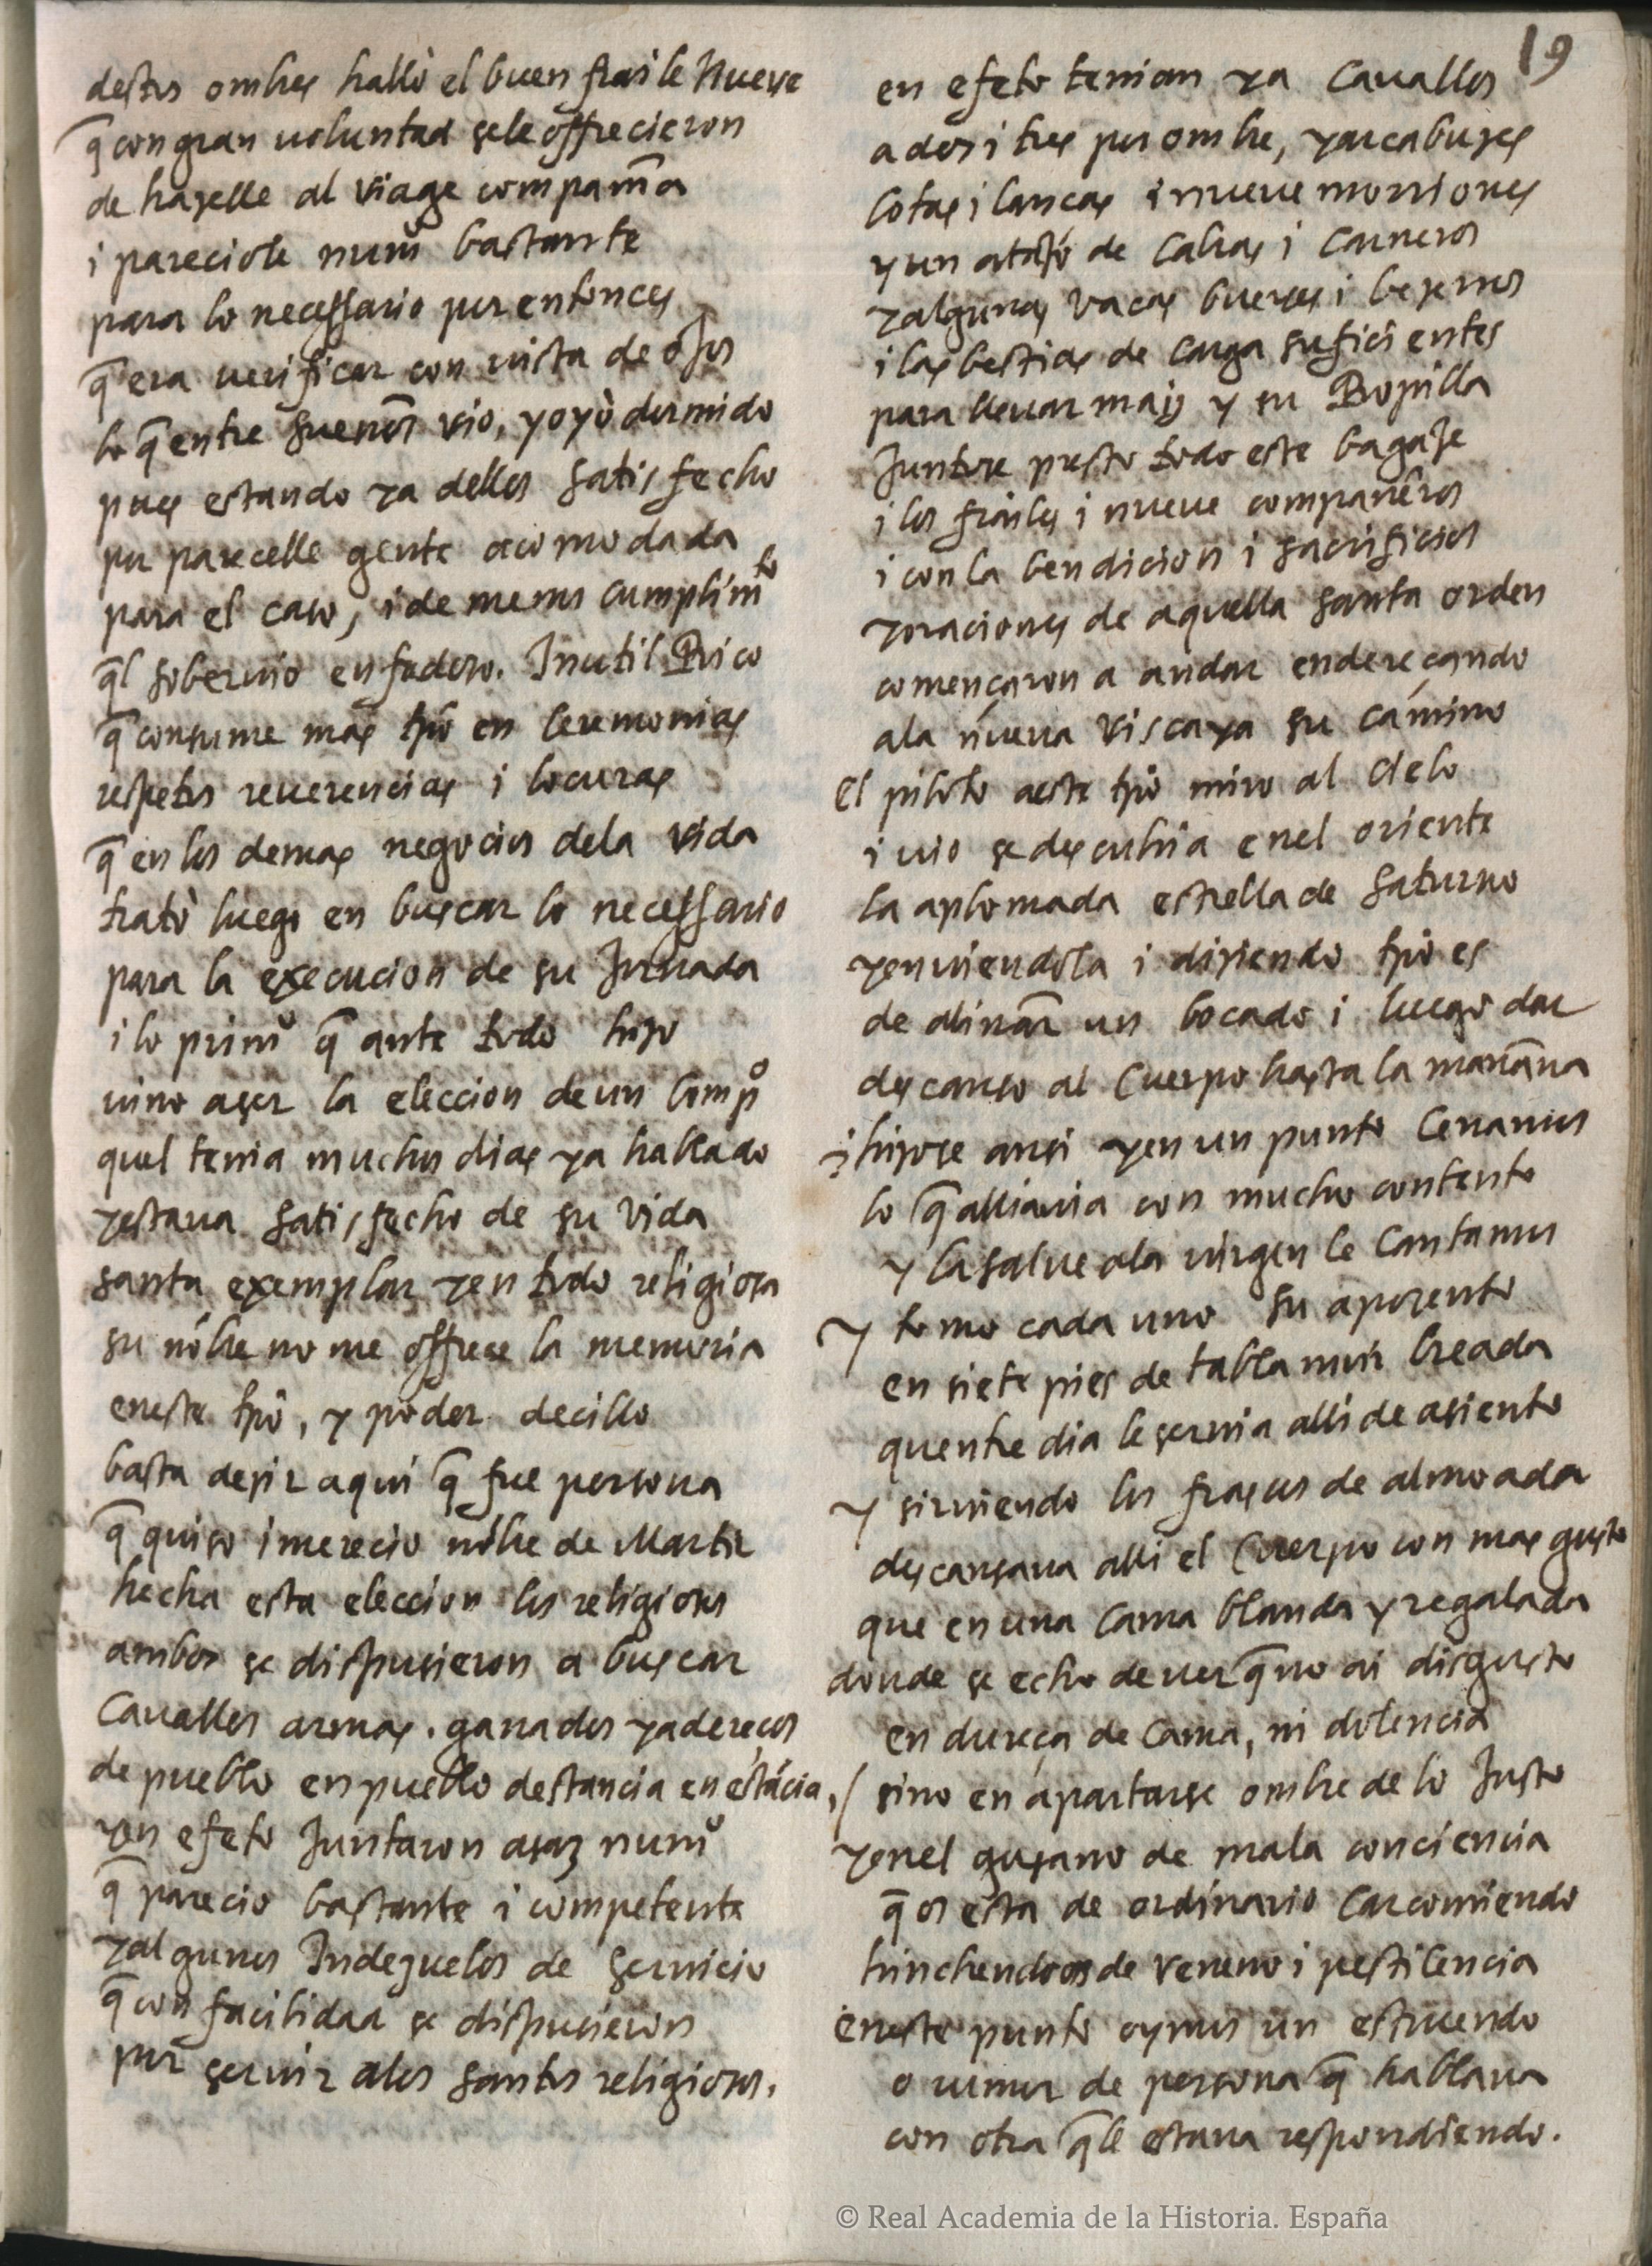 19
destos ombres hallò el buen fraile Nueve
q̃ con gran uoluntad sele offrecieron
de hazelle al viage compam̃a
i pareciole num̊ bastante
para lo necessario por entonces
q̃ era uerificar con uista de ojos
lo q̃ entre sueños vio, y oyò dormido
pues estando ya dellos satisfecho
por parecelle gente acomodada
para el caso, i de menos cumplimto
q̃l soberuio enfadoso. Inutil Rico
q̃ consume mas tpõ en ceremonias
respetos reuerencias i locuras
q̃ en los demas negocios dela vida
tratò luego en buscar lo necessario
para la execucion de su Jornada
i lo prim̊ q̃ ante todo hizo
uino aser la eleccion de un comp̊
quel tenia muchos dias ya hablado
yestaua satisfecho de su vida
santa exemplar yen todo religiosa
su nõbre no me offrese la memoria
eneste tpõ, y poder decillo
basta desir aqui q̃ fue persona
q̃ quiso i merecio nõbre de Martir
hecha esta eleccion los religiosos
ambos se dispusieron a buscar
Cauallos armas. ganados yadereços
de pueblo en pueblo destancia en estãcia,
yen efeto Juntaron asaz num̊
q̃ parecio bastante i competente
yalgunos Indezuelos de seruicio
q̃ con facilidad se dispusieron
por seruir alos santos religiosos.
en efeto tenian ya Cauallos
a dos i tres por ombre, yarcabuzes
cotas i lanças i nueue morriones
y un atajo de Cabras i Carneros
yalgunas vacas bueyes i bezerros
i las bestias de carga suficientes
para lleuar maiz y su Ropilla
Juntose presto todo este bagaje
i los frailes i nueue compañeros
i con la bendicion i sacrificios
yoraciones de aquella santa orden
començaron a andar endereçando
ala nueua viscaya su camino
El piloto aeste tpõ miro al cielo
i uio se descubria enel oriente
la aplomada estrella de Saturno
yenuiendola i disiendo tpõ es
de aliñar un bocado i luego dar
descanso al Cuerpo hasta la mañana
i hizose ansi yen un punto Cenamos
lo q̃ alliauia con mucho contento
y la salue ala uirgen le Cantamos
y tomo cada uno su aposento
en siete pies de tabla mui breada
quentre dia le seruia alli de asiento
y siruiendo los frascos de almoada
descansaua alli el Cuerpo con mas gusto
que en una Cama blanda y regalada
donde se echo de uer q̃ no ai disgusto
en dureça de Cama, ni dolencia
/ sino en apartarse ombre de lo Justo
yenel gusano de mala conciencia
q̃ os esta de ordinario Carcomiendo
hinchendoos de veneno i pestilencia
eneste punto oymos un estruendo
o rumor de persona q̃ hablaua
con otra q̃ le estaua respondiendo.
© Real Academia de la Historia. España